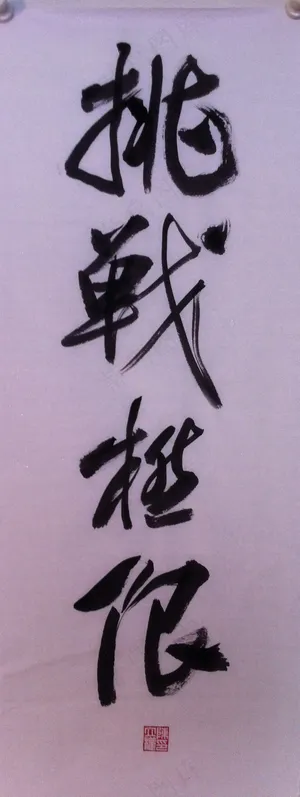 挑戰極限